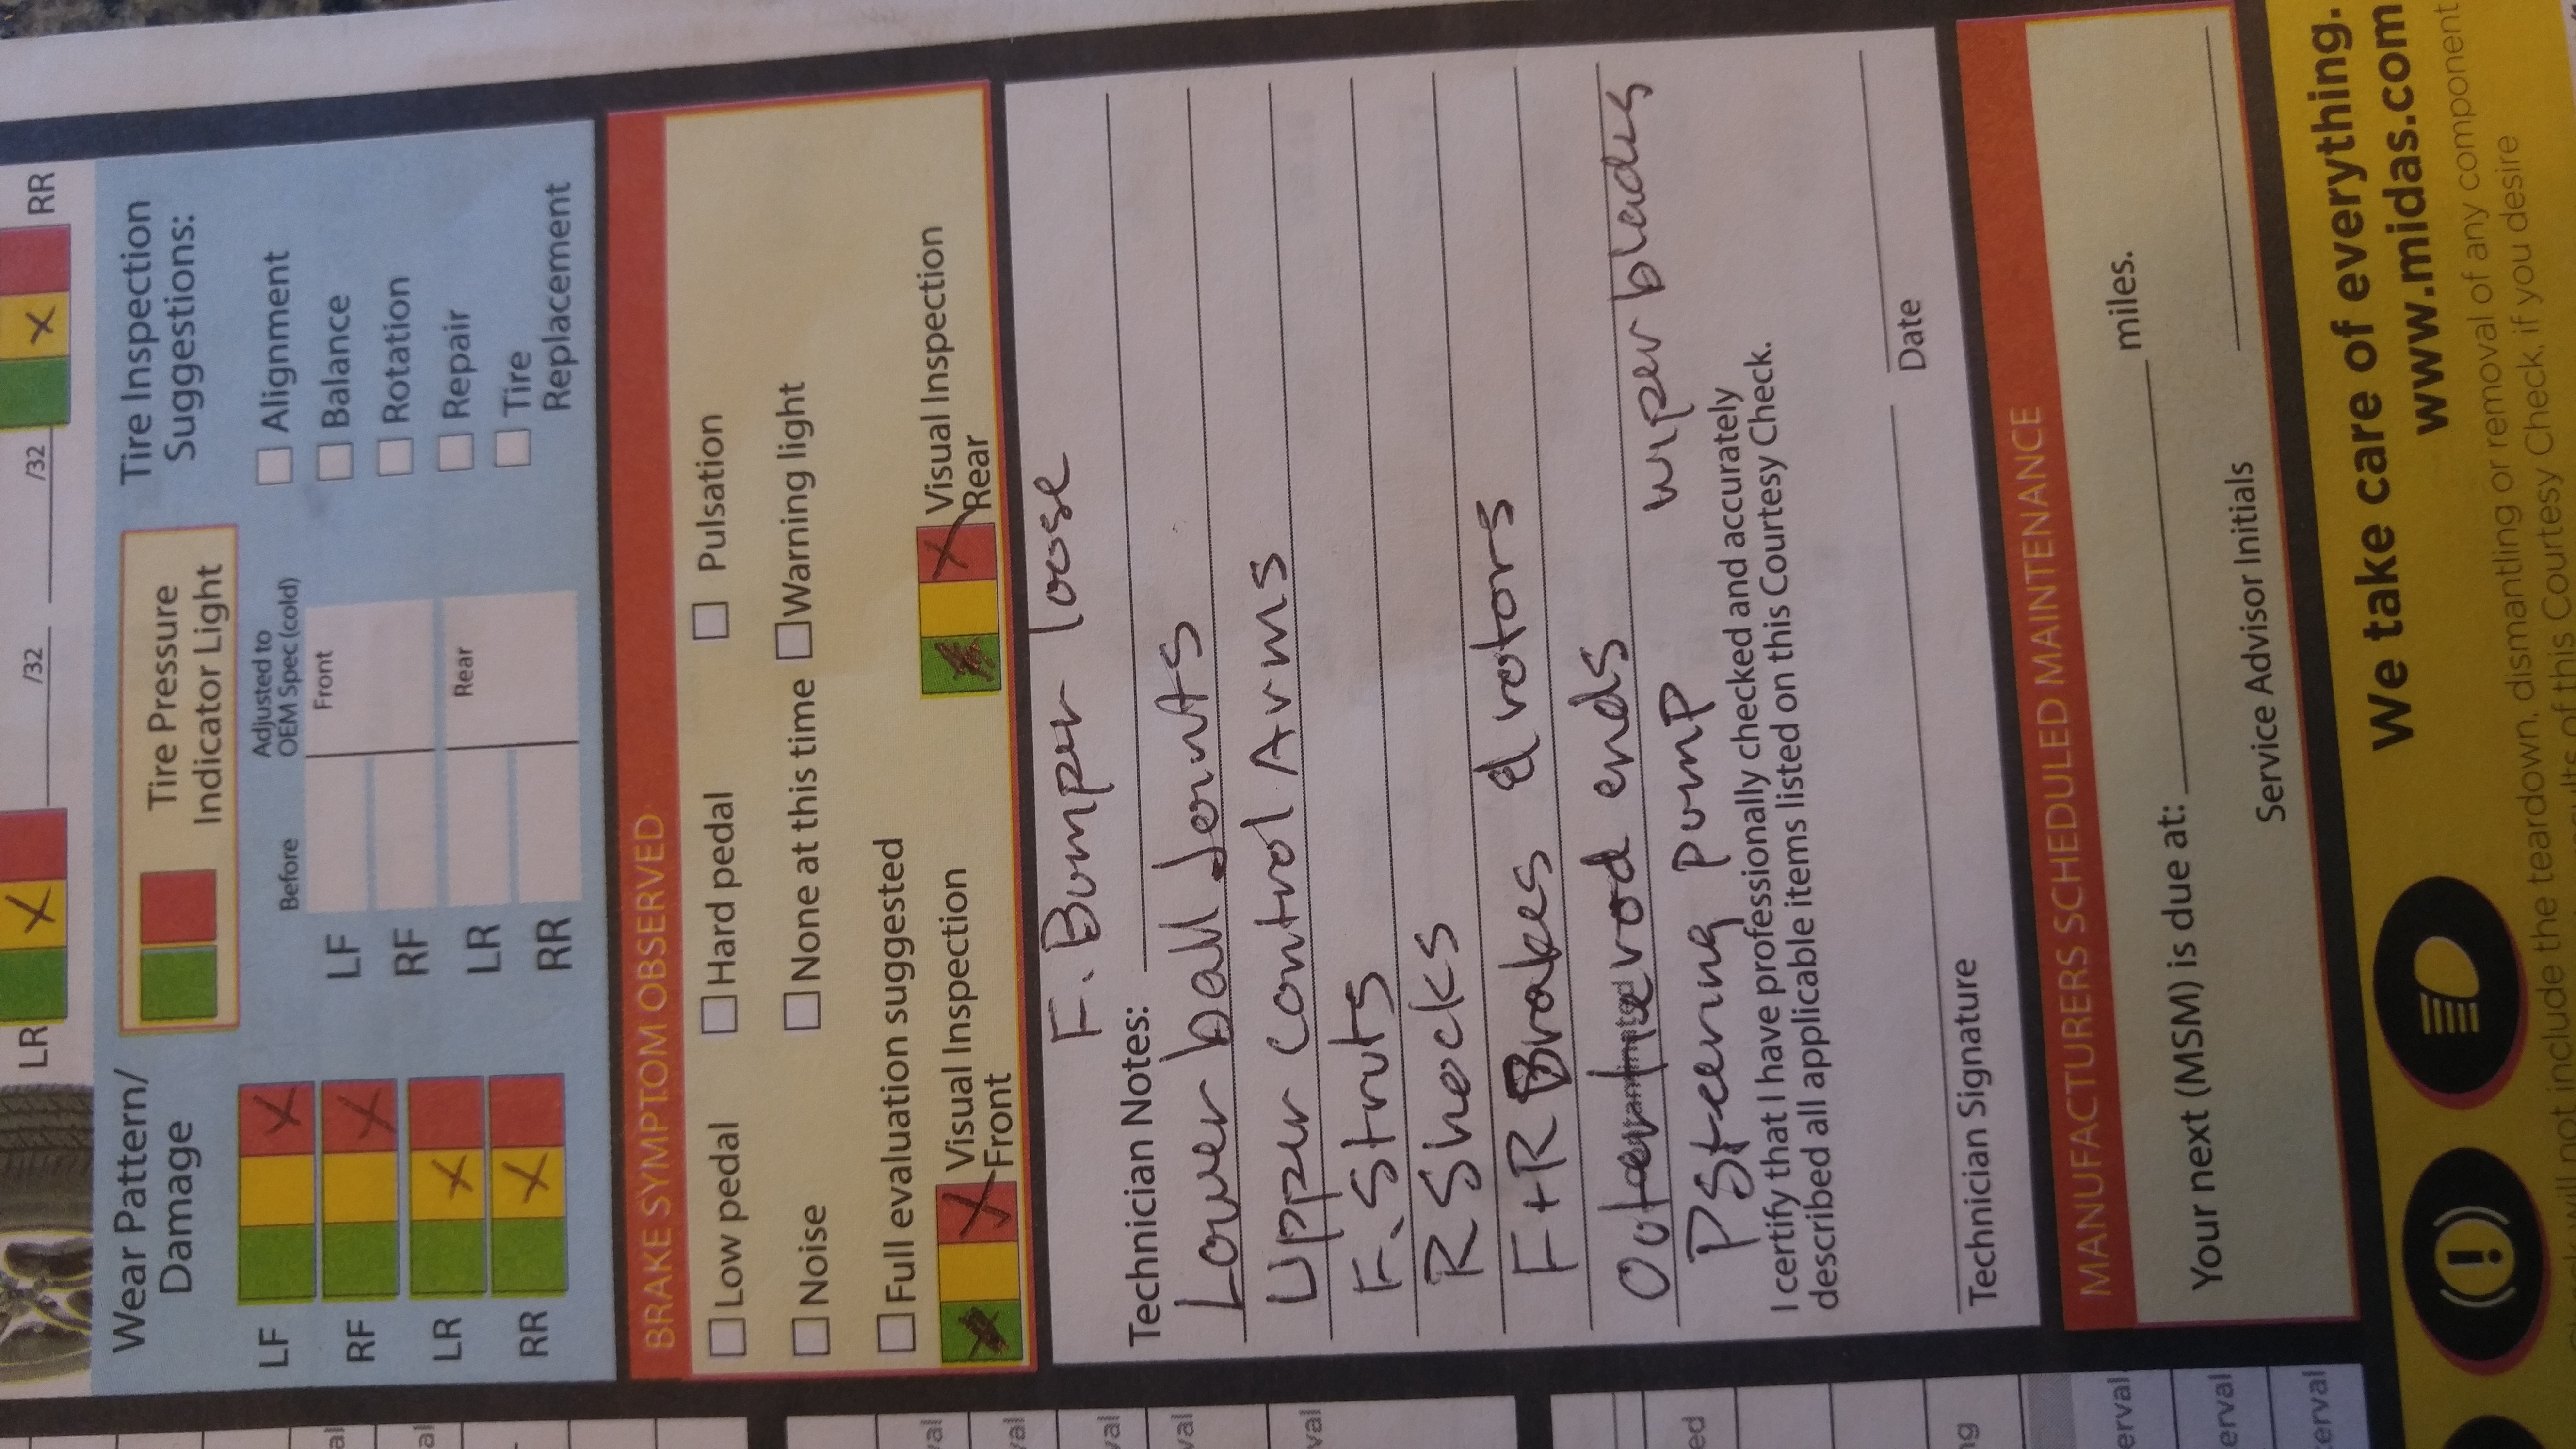 LR
/32
/32
RR
Wear Pattern/
Damage
LF
RF
LR
RR
Tire Pressure
Indicator Light
Before
Adjusted to
OEM Spec (cold)
LF
Front
RF
LR
Rear
RR
Tire Inspection
Suggestions:
Alignment
Balance
Rotation
Repair
Tire
Replacement
BRAKE SYMPTOM OBSERVED
Low pedal
Hard pedal
Pulsation
Noise
None at this time
Warning light
Full evaluation suggested
Visual Inspection
Front
Visual Inspection
Rear
F. Bumper loose
Technician Notes:
Lower ball Joints
Upper control Arms
F. Struts
R Shocks
F+R Brakes & rotors
Outer tierod ends
P Steering Pump
wiper blades
I certify that I have professionally checked and accurately
described all applicable items listed on this Courtesy Check.
Technician Signature
Date
MANUFACTURERS SCHEDULED MAINTENANCE
Your next (MSM) is due at:
miles.
Service Advisor Initials
We take care of everything.
www.midas.com
will not include the teardown, dismantling or removal of any component
results of this Courtesy Check, if you desire